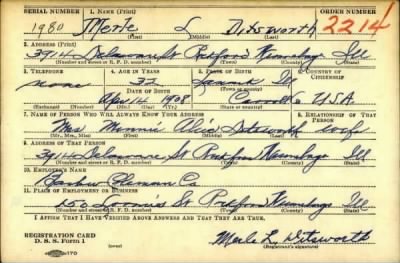 SERIAL NUMBER 1. NAME (Print) ORDER NUMBER
1980 Merle L Ditsworth 2214
(First) (Middle) (Last)
2. ADDRESS (Print)
3914 Delaware St Rockford Winnebago Ill
(Number and street or R. F. D. number) (Town) (County) (State)
3. TELEPHONE 4. AGE IN YEARS 5. PLACE OF BIRTH 6. COUNTRY OF CITIZENSHIP
none 32
DATE OF BIRTH (Town or county)
Apr 14 1908 Carroll Co USA
(Exchange) (Number) (Mo.) (Day) (Yr.) (State or country)
7. NAME OF PERSON WHO WILL ALWAYS KNOW YOUR ADDRESS 8. RELATIONSHIP OF THAT PERSON
Mrs Minnie Ditsworth wife
(Mr., Mrs., Miss) (First) (Middle) (Last)
9. ADDRESS OF THAT PERSON
3914 Delaware St Rockford Winnebago Ill
(Number and street or R. F. D. number) (Town) (County) (State)
10. EMPLOYER'S NAME
Co
11. PLACE OF EMPLOYMENT OR BUSINESS
Loomis St Rockford Winnebago Ill
(Number and street or R. F. D. number) (Town) (County) (State)
I AFFIRM THAT I HAVE VERIFIED ABOVE ANSWERS AND THAT THEY ARE TRUE.
REGISTRATION CARD
D. S. S. Form 1 Merle L. Ditsworth
(Registrant's signature)